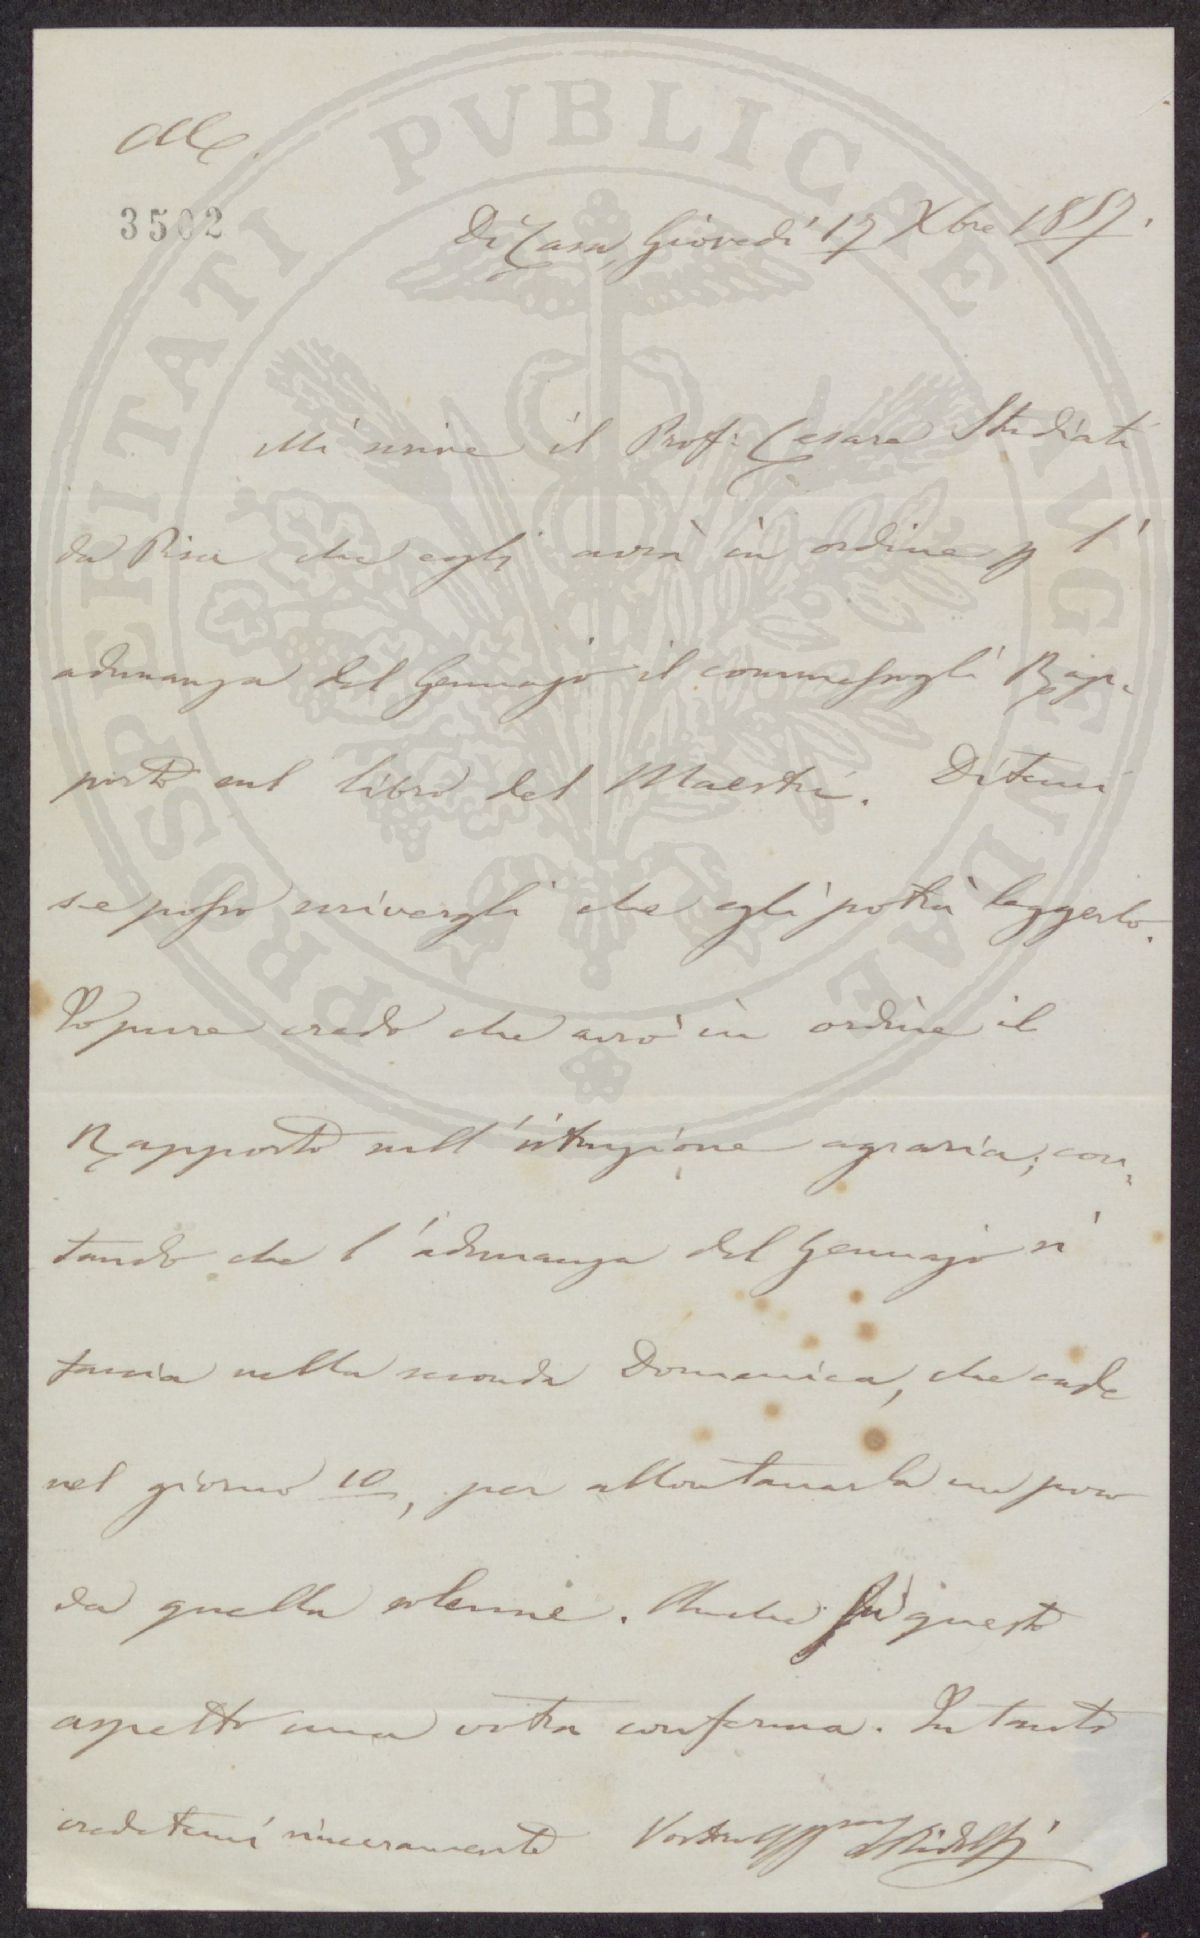 3502
Di Casa, Giovedì 17 Xbre 1857.
Mi scrive il Prof: Cesare Studiati
da Pisa che egli avrà in ordine p l'
adunanza del Gennajo il commessogli Rap-
porto sul libro del Maestri. Ditemi
se posso scrivergli che egli potrà leggerlo.
Io pure credo che avrò in ordine il
Rapporto sull'istruzione agraria; con-
tando che l'adunanza del Gennajo si
faccia nella seconda Domenica, che cade
nel giorno 10, per allontanarla un poco
da quella solenne. Anche su questo
aspetto una vostra conferma. Intanto
credetemi sinceramente Vostro Affmo LRidolfi
PROSPERITATI PVBLICAE AVGENDAE